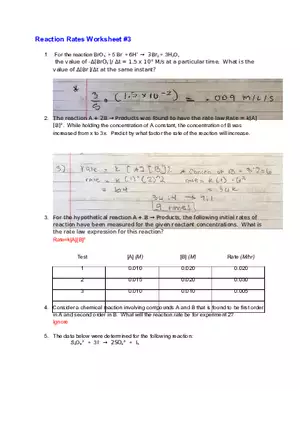 Reaction Rates Worksheet #3
1. For the reaction BrO₃⁻ + 5 Br⁻ + 6H⁺ → 3Br₂ + 3H₂O,
the value of -Δ[BrO₃⁻]/ Δt = 1.5 x 10⁻² M/s at a particular time. What is the
value of Δ[Br⁻]/Δt at the same instant?
(1.5x10⁻²) = .009 M/L/S
2. The reaction A + 2B → Products was found to have the rate law Rate = k[A]
[B]³. While holding the concentration of A constant, the concentration of B was
increased from x to 3x. Predict by what factor the rate of the reaction will increase.
rate = k [A][B]
9 times
3. For the hypothetical reaction A + B → Products, the following initial rates of
reaction have been measured for the given reactant concentrations. What is
the rate law expression for this reaction?
Rate=k[A][B]²
Test [A] (M) [B] (M) Rate (M/hr)
1 0.010 0.020 0.020
2 0.015 0.020 0.030
3 0.010 0.010 0.005
4. Consider a chemical reaction involving compounds A and B that is found to be first order
in A and second order in B. What will the reaction rate be for experiment 2?
Ignore
5. The data below were determined for the following reaction:
S₂O₈²⁻ + 3I⁻ → 2SO₄²⁻ + I₃⁻